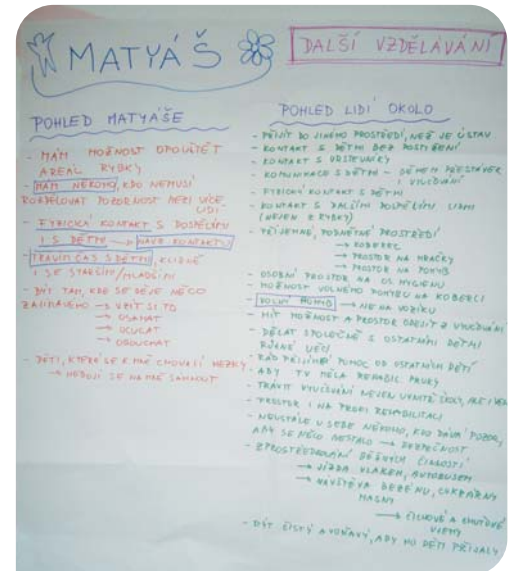 MATYÁŠ
DALŠÍ VZDĚLÁVÁNÍ
POHLED MATYÁŠE
- MÁM MOŽNOST OPOUŠTĚT
AREÁL RYBKY
- MÁM NĚKOHO, KDO NEMUSÍ
ROZDĚLOVAT POZORNOST MEZI VÍCE
LIDÍ
- FYZICKÝ KONTAKT S DOSPĚLÝMI
I S DĚTMI → KONTAKTU
- TRÁVÍM ČAS S DĚTMI, KLIDNĚ
I SE STARŠÍMI/MLADŠÍMI
- BÝT TAM, KDE SE DĚJE NĚCO
ZAJÍMAVÉHO → VZÍT SI TO
→ OSAHAT
→ OCUCAT
→ OBOUCHAT
- DĚTI, KTERÉ SE KE MNĚ CHOVAJÍ HEZKY
→ NEBOJÍ SE NA MNĚ SÁHNOUT
POHLED LIDÍ OKOLO
- PŘIJÍT DO JINÉHO PROSTŘEDÍ, NEŽ JE ÚSTAV
- KONTAKT S DĚTMI BEZ POSTIŽENÍ
- KONTAKT S VRSTEVNÍKY
- KOMUNIKACE S DĚTMI - BĚHEM PŘESTÁVEK
I VYUČOVÁNÍ
- FYZICKÝ KONTAKT S DĚTMI
- KONTAKT S DALŠÍMI DOSPĚLÝMI LIDMI
(NEJEN Z RYBKY)
- PŘÍJEMNÉ, PODNĚTNÉ PROSTŘEDÍ
→ KOBEREC
→ PROSTOR NA HRAČKY
→ PROSTOR NA POHYB
- OSOBNÍ PROSTOR NA OS. HYGIENU
- MOŽNOST VOLNÉHO POHYBU NA KOBERCI
- VOLNÝ POHYB → NE NA VOZÍKU
- MÍT MOŽNOST A PROSTOR ODEJÍT Z VYUČOVÁNÍ
- DĚLAT SPOLEČNĚ S OSTATNÍMI DĚTMI
RŮZNÉ VĚCI
- RÁD PŘIJÍMÁ POMOC OD OSTATNÍCH DĚTÍ
- ABY TV MĚLA REHABIL. PRVKY
- TRÁVIT VYUČOVÁNÍ NEJEN UVNITŘ ŠKOLY, ALE I VEN
- PROSTOR I NA PROFI REHABILITACI
- NEUSTÁLE U SEBE NĚKOHO, KDO DÁVÁ POZOR,
ABY SE NĚCO NESTALO → BEZPEČNOST
- ZPROSTŘEDKOVÁNÍ BĚŽNÝCH ČINNOSTÍ
→ JÍZDA VLAKEM, AUTOBUSEM
→ NÁVŠTĚVA BAZÉNU, CUKRÁRNY
→ ČICHOVÉ A CHUŤOVÉ
VJEMY
- BÝT ČISTÝ A VOŇAVÝ, ABY HO DĚTI PŘIJALY